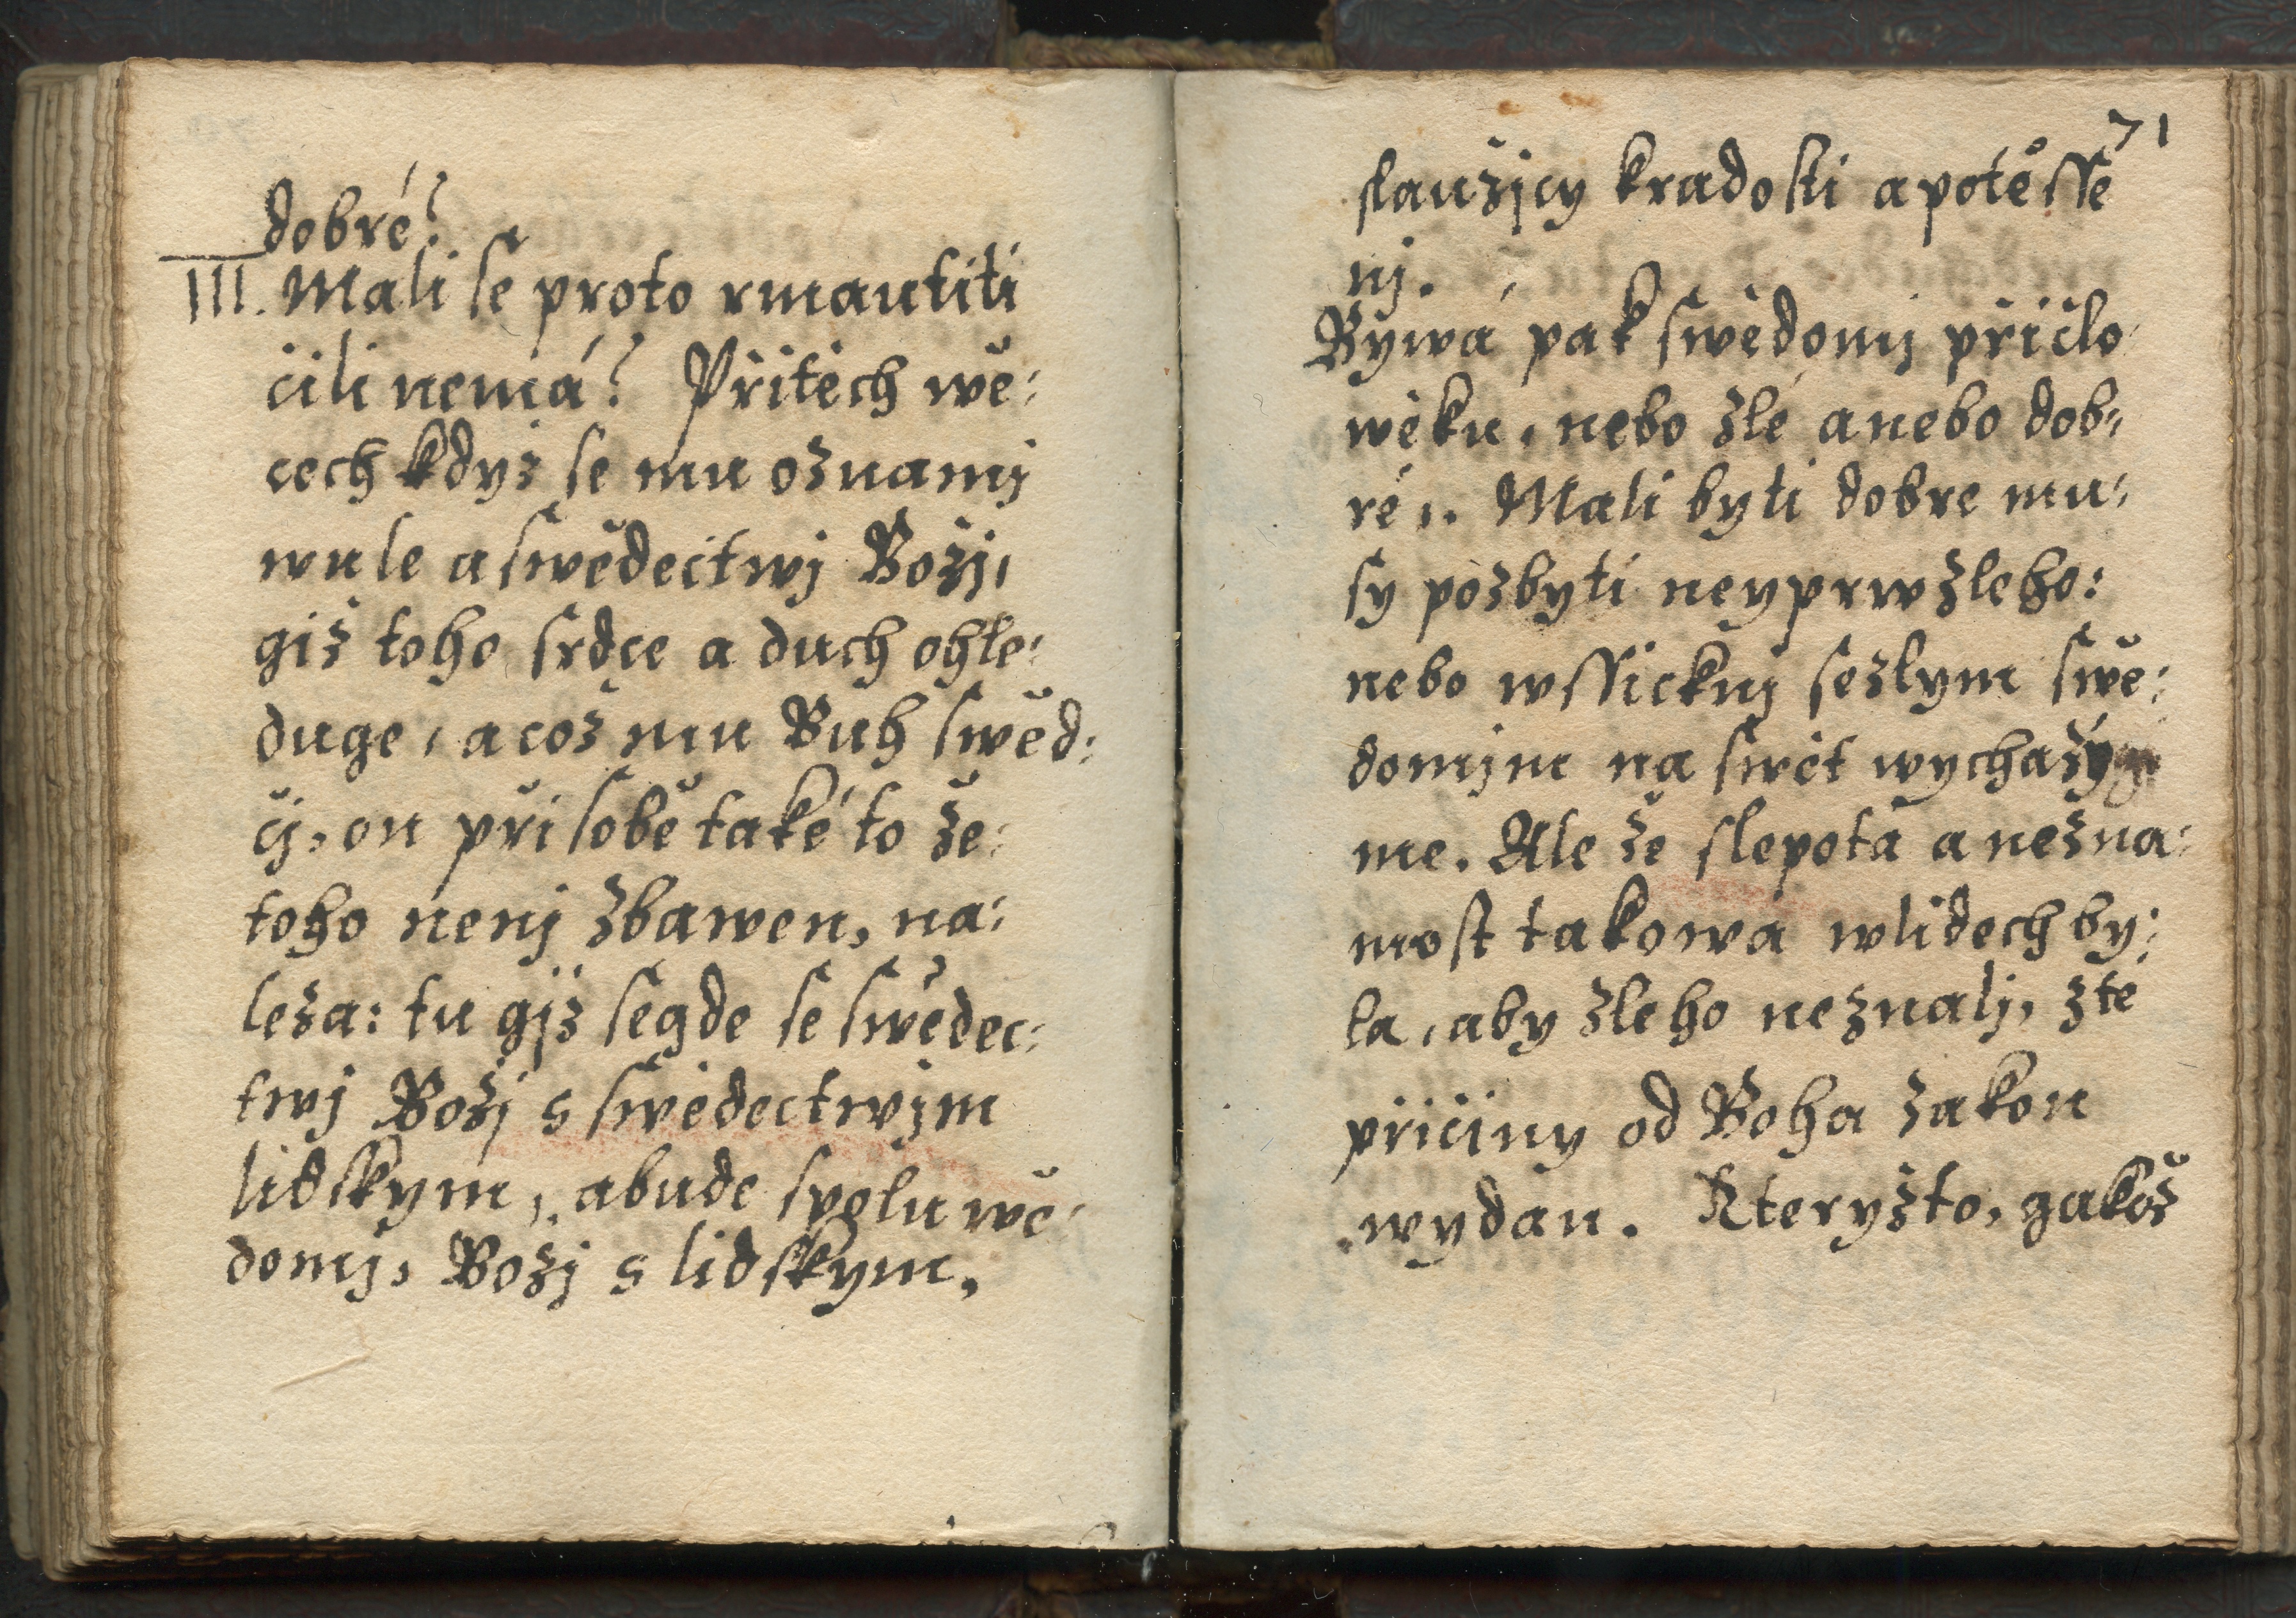 dobré?
III. Mali se proto rmautiti
čili nemá? Přitěch wě:
cech kdyz se mu oznamj
wule a swědectwj Božj,
giž toho srdce a duch ohle:
duge, a což mu Buh swěd:
čj, on při sobě také to že
toho nenj zbawen, na:
leza: tu gjž segde se swědec:
twj Božj s swědectwjm
lidskym, a bude spolu wě:
domj, Božj s lidskym,
71
slaužjcy kradosti a potěsse
nj.
Bywá pak swědomj přičlo
wěku, nebo zlé anebo dob:
ré,. Mali byti dobre mu:
sy pozbyti neyprw zleho:
nebo wssickni sezlym swě:
domjm na swět wychazý
me. Ale že slepota a nezna:
most takowá wlidech by:
la, aby zleho neznalj, zté
přičiny od Boha zakon
wydan. Kteryžto, gakož